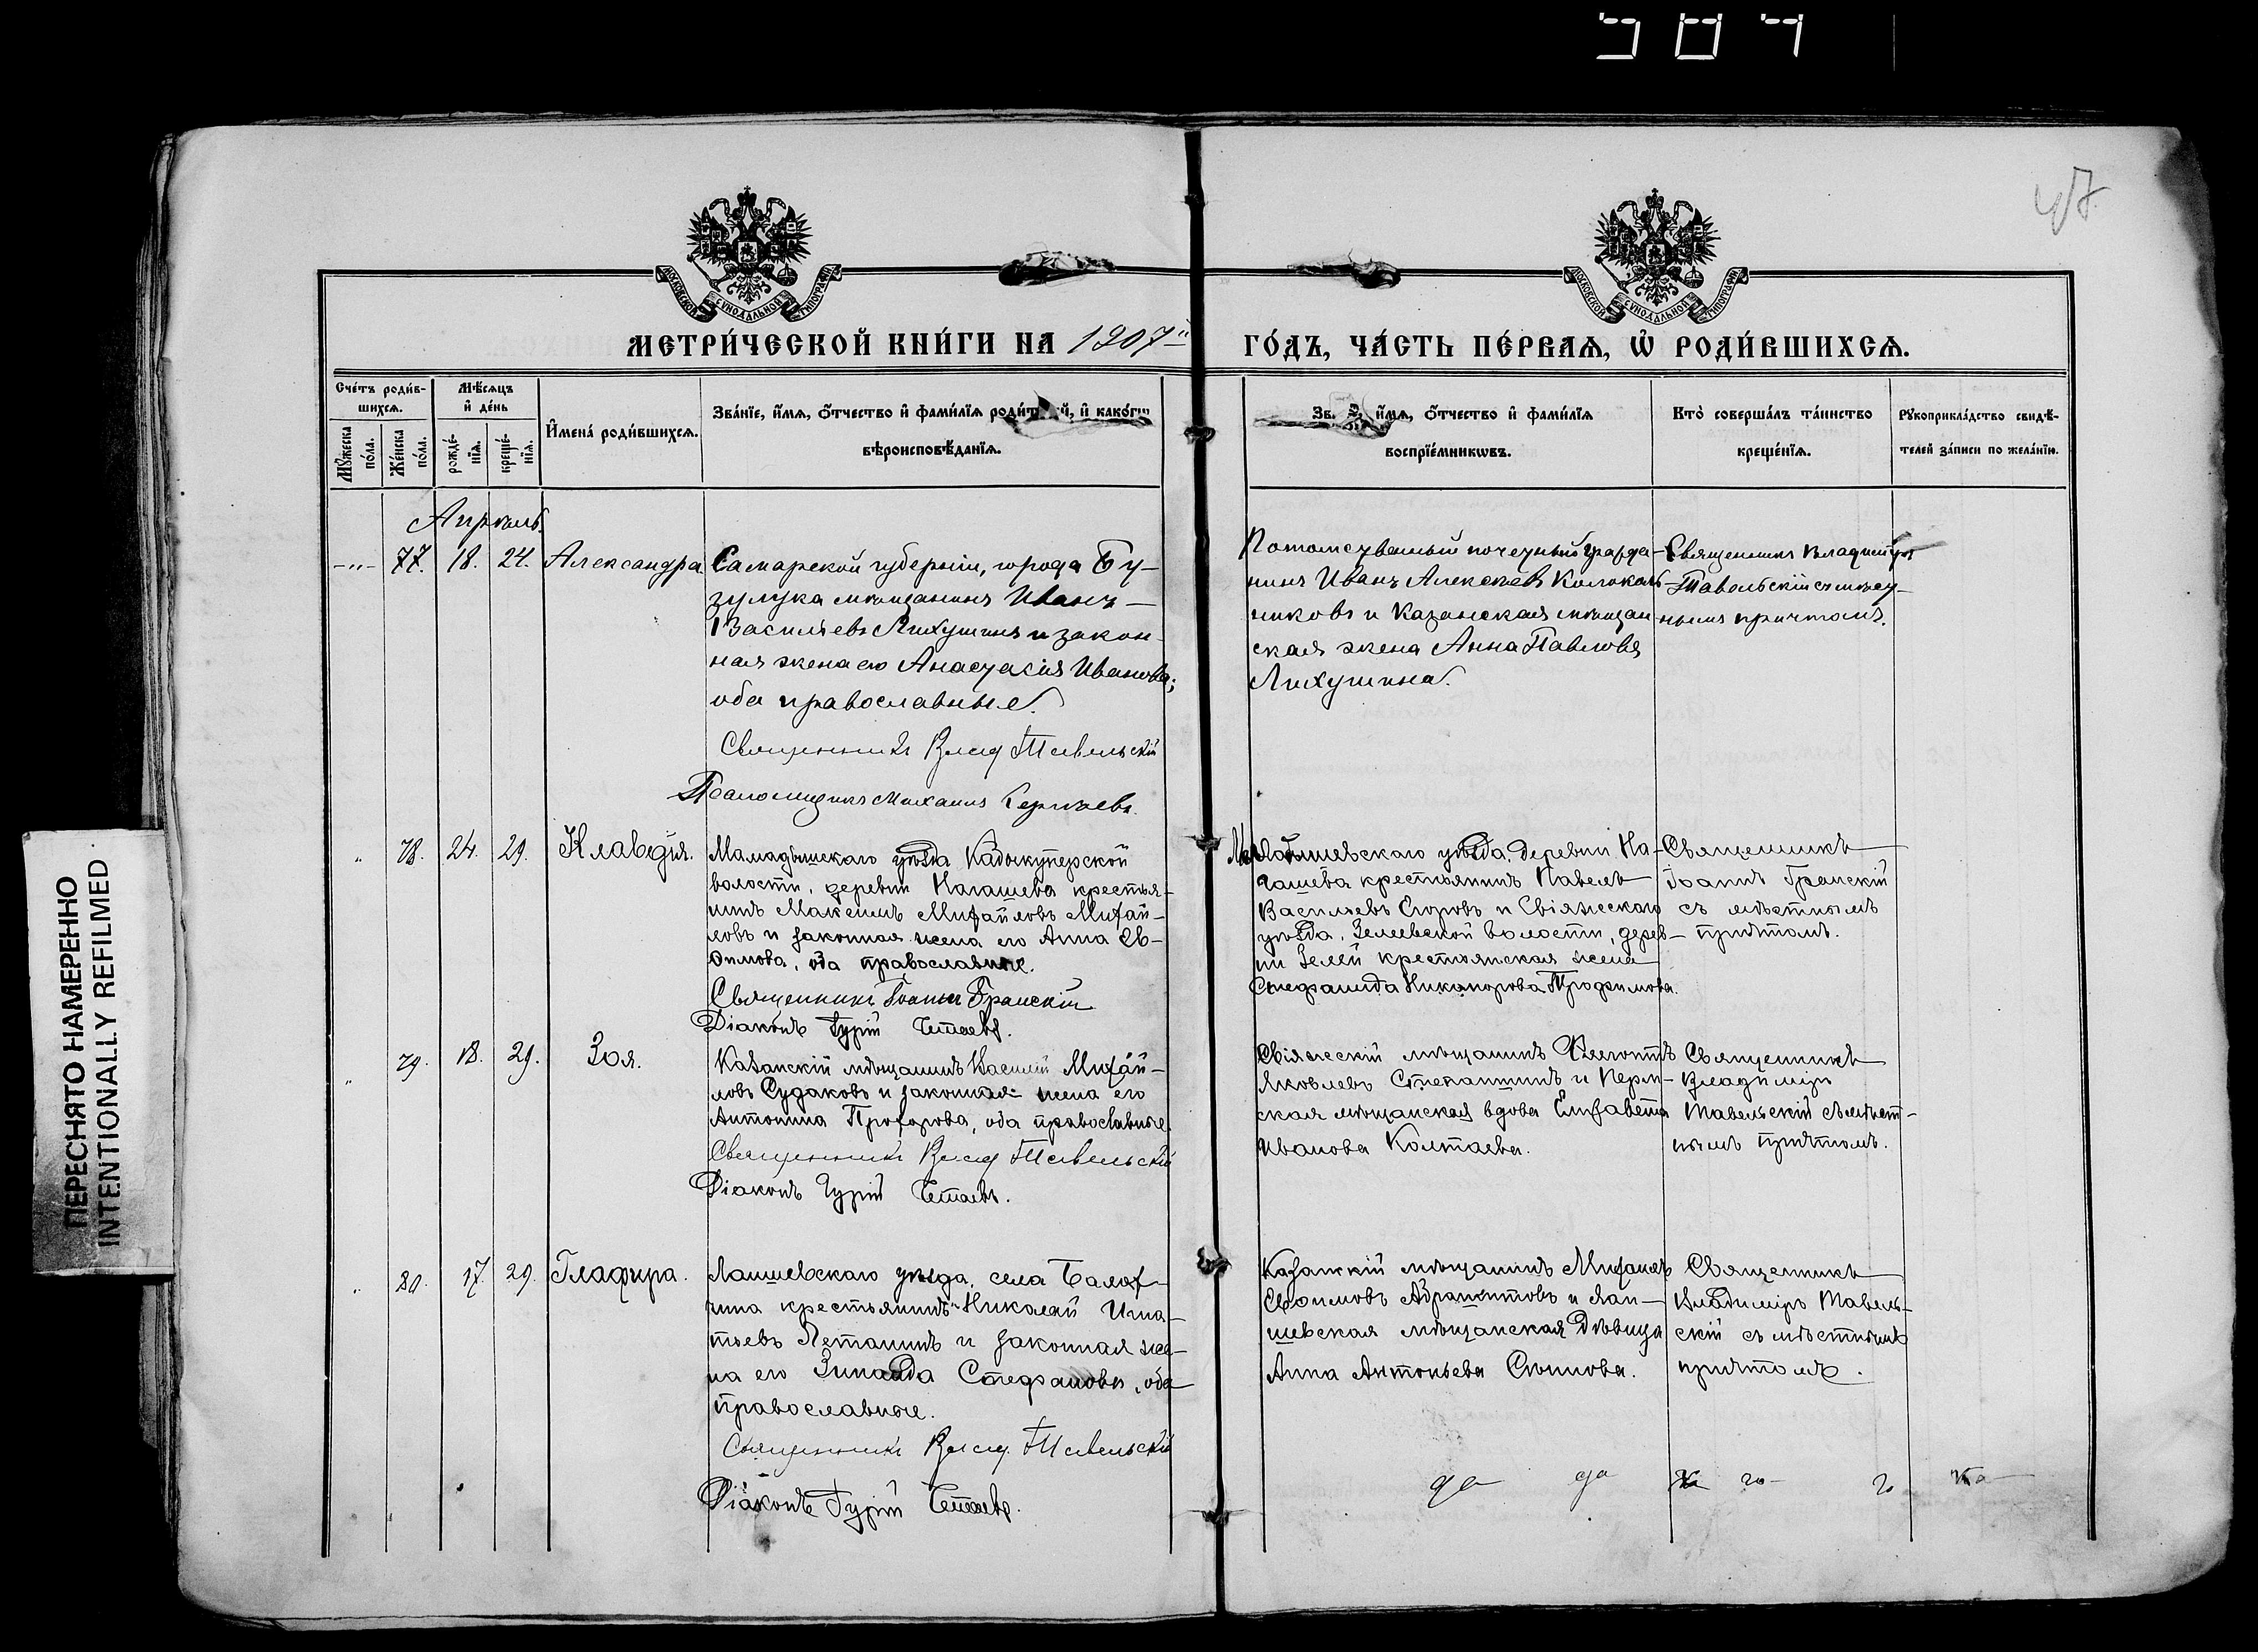 47
МОСКОВСКОЙ СУНОДАЛЬНОЙ ТИПОГРАФІИ
МОСКОВСКОЙ СУНОДАЛЬНОЙ ТИПОГРАФІИ
МЕТРИ́ЧЕСКОЙ КНИ́ГИ НА 1907й ГО́ДЪ, ЧА́СТЬ ПЕ́РВАѦ, Ѡ҆ РОДИ́ВШИХСѦ.
Сче́тъ роди́в-
шихсѧ.
Му́жеска по́ла.
Же́нска по́ла.
Мѣ́сяцъ
и҆ де́нь
рожде́-
нїѧ.
креще́-
нїѧ.
И҆мена̀ роди́вшихсѧ.
Зва́нїе, и҆́мѧ, ѻ҆́тчество и҆ фами́лїѧ роди́т й, и҆ како́гѡ
вѣроисповѣ́данїѧ.
Зв. и҆́мѧ, ѻ҆́тчество и҆ фами́лїѧ
воспрїе́мникѡвъ.
Кто̀ соверша́лъ та́инство
креще́нїѧ.
Рꙋкоприкла́дство свидѣ́-
телей за́писи по жела́нїю.
Апрѣль.
-"- 77. 18. 24. Александра
Самарской губерніи, города Бу-
зулука мѣщанинъ Иванъ
Васильевъ Лихушинъ и закон-
ная жена его Анастасія Иванова;
оба православные.
Священникъ Влад Тавельскій
Псаломщикъ Михаилъ
Потомственный почетный гражда-
нинъ Иванъ Алексѣевъ Колоколь-
никовъ и Казанская мѣщан
ская жена Анна Павлова
Лихушина.
Священникъ Владиміръ
Тавельскій съ мѣст-
нымъ причтомъ.
" 78. 24. 29. Клавдія.
Мамадышскаго уѣзда Кабыкуперской
волости, деревни Нагашева крестья-
нинъ Максимъ Михайловъ Михай-
ловъ и законная жена его Анна Ев-
фимова, оба православные.
Священникъ Іоаннъ Гранскій
Діаконъ Гурій
уѣзда, деревни На-
гашева крестьянинъ Павелъ
Васильевъ Егоровъ и Свіяжскаго
уѣзда, волости, дерев-
ни крестьянская жена
Стефанида Никанорова Трофимова.
Священникъ
Іоаннъ Гранскій
съ мѣстнымъ
причтомъ.
" 79. 18. 29. Зоя.
Казанскій мѣщанинъ Василій Михай-
ловъ Судаковъ и законная жена его
Антонина Прохорова, оба православные.
Священникъ Влад Тавельскій
Діаконъ Гурій
Свіяжскій мѣщанинъ
Яковлевъ и Перм-
ская мѣщанская вдова Елизавета
Иванова Колтаева.
Священникъ
Владиміръ
Тавельскій съ мѣст-
нымъ причтомъ.
" 80. 17. 29. Глафира.
Лаишевскаго уѣзда, села Балах-
чина крестьянинъ Николай Игна-
тьевъ Летанинъ и законная же-
на его Зинаида Стефанова, оба
православные.
Священникъ Влад. Тавельскій
Діаконъ Гурій
Казанскій мѣщанинъ Михаилъ
Евфимовъ и Лаи-
шевская мѣщанская дѣвица
Анна Антоньева
Священникъ
Владиміръ Тавель-
скій съ мѣстнымъ
причтомъ.
да да го го ка
ПЕРЕСНЯТО НАМЕРЕННО
INTENTIONALLY REFILMED